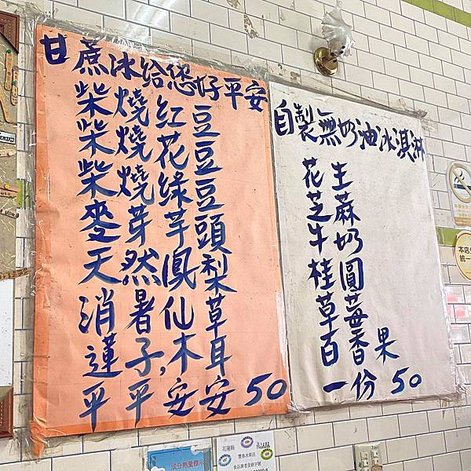 甘蔗冰給您好平安
柴燒紅豆
柴燒花豆
柴燒綠豆
麥芽芋頭
天然鳳梨
消暑仙草
蓮子,木耳
平平安安 50
自製無奶油冰淇淋
花生
芝麻
牛奶
桂圓
草莓
百香果
一份 50
本店
統一